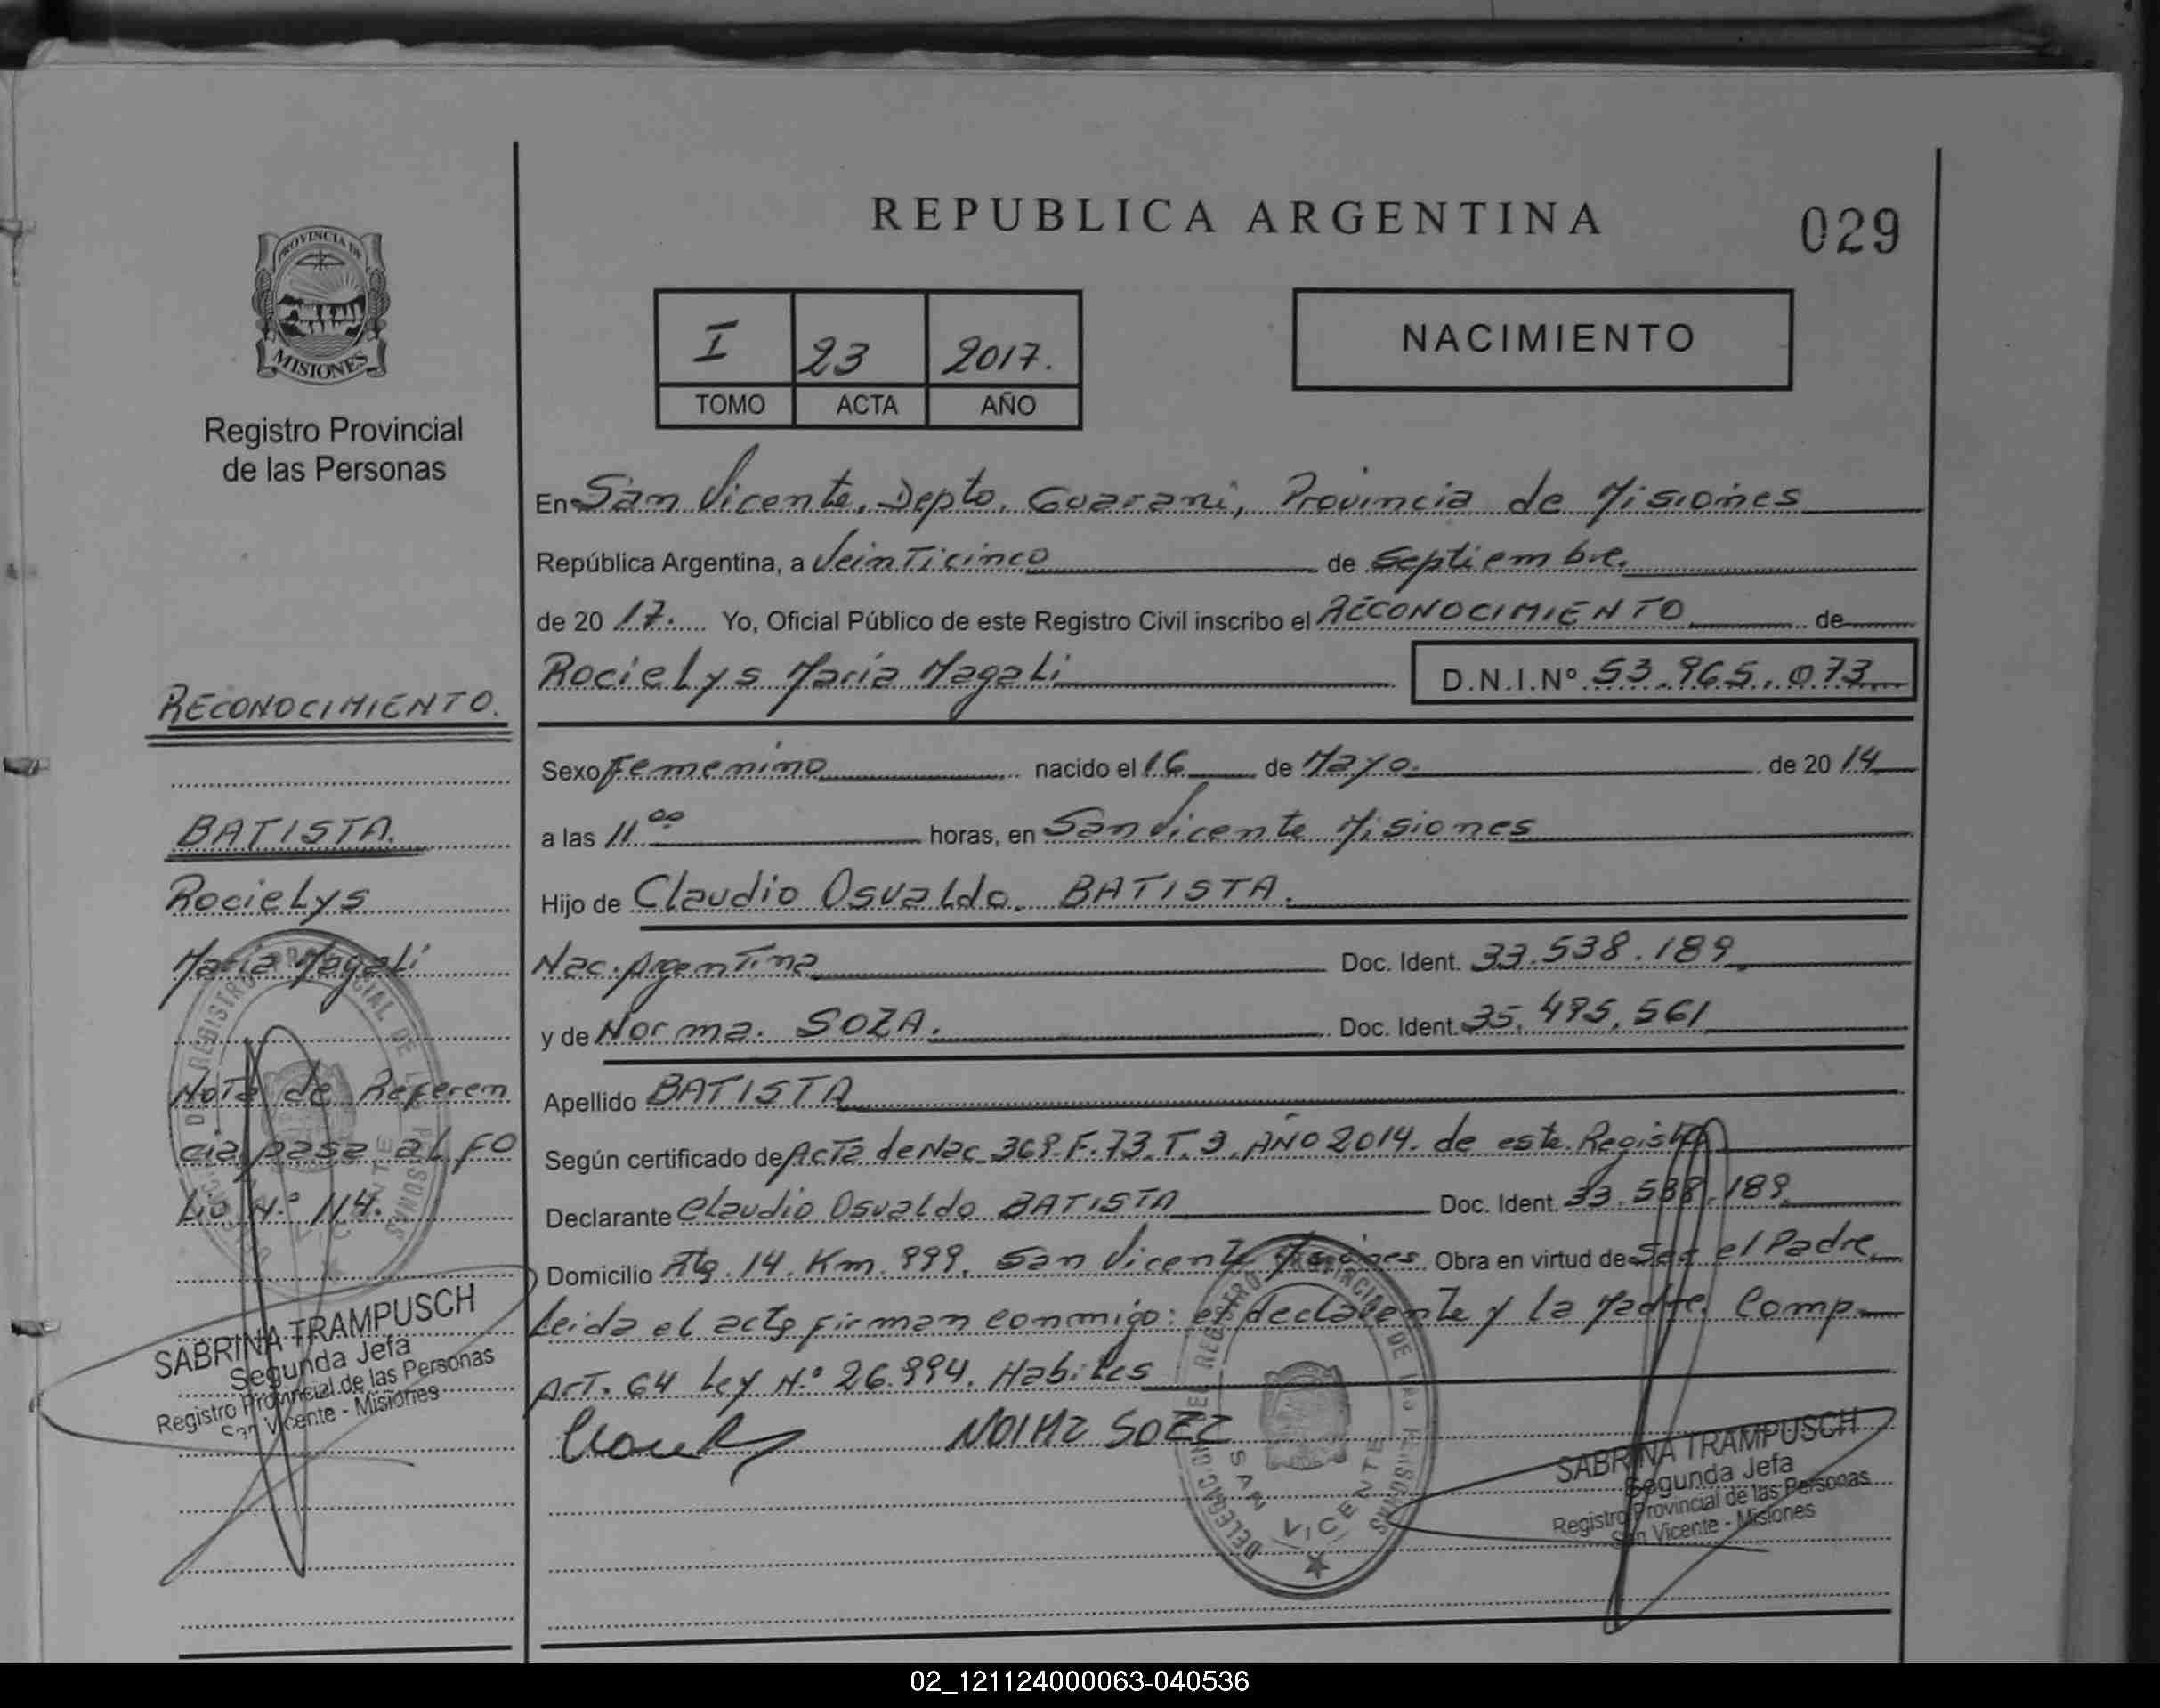 REPUBLICA ARGENTINA
029
PROVINCIA DE
MISIONES
Registro Provincial
de las Personas
I 23 2017.
TOMO ACTA AÑO
NACIMIENTO
En San Vicente, Depto. Guarani, Provincia de Misiones
República Argentina, a Veinticinco de Septiembre.
de 20 17. Yo, Oficial Público de este Registro Civil inscribo el RECONOCIMIENTO de
Rocielys María Magali D.N.I.Nº 53.965.073
Sexo Femenino nacido el 16 de Mayo. de 20 14
a las 11 00 horas, en San Vicente Misiones
Hijo de Claudio Osvaldo. BATISTA.
Nac. Argentina Doc. Ident. 33.538.189
y de Norma. SOZA. Doc. Ident. 35.495.561
Apellido BATISTA
Según certificado de Acta de Nac 369. F. 73. T. 3. AÑO 2014. de este Registro
Declarante Claudio Osvaldo BATISTA Doc. Ident. 33.538.189
Domicilio Rta. 14. Km. 999. San Vicente Misiones Obra en virtud de Ser el Padre
Leida el acta firman conmigo: el declarante y la Madre. Comp
Art. 64 Ley N.º 26.994. Habiles
RECONOCIMIENTO.
BATISTA.
Rocielys
María Magali
Nota de Referen
cia pasa al Fo
lio N.º 114.
SABRINA TRAMPUSCH
Segunda Jefa
Registro Provincial de las Personas
San Vicente - Misiones
DELEGACION DEL REGISTRO PROVINCIAL DE LAS PERSONAS
SAN VICENTE
SABRINA TRAMPUSCH
Segunda Jefa
Registro Provincial de las Personas
San Vicente - Misiones
02_121124000063-040536